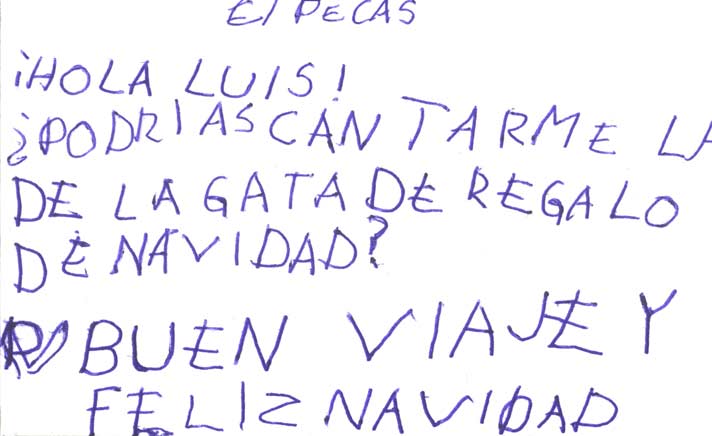 El PECAS
¡HOLA LUIS!
¿PODRIAS CANTARME LA
DE LA GATA DE REGALO
DE NAVIDAD?
BUEN VIAJE Y
FELIZ NAVIDAD